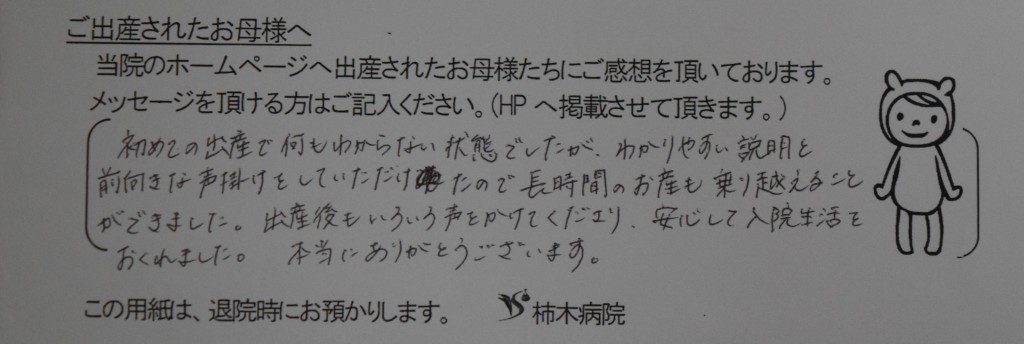 ご出産されたお母様へ
当院のホームページへ出産されたお母様たちにご感想を頂いております。
メッセージを頂ける方はご記入ください。(HPへ掲載させて頂きます。)
初めての出産で何もわからない状態でしたが、わかりやすい説明と
前向きな声掛けをしていただけたので長時間のお産も乗り越えること
ができました。出産後もいろいろ声をかけてくださり、安心して入院生活を
おくれました。 本当にありがとうございます。
この用紙は、退院時にお預かりします。 柿木病院